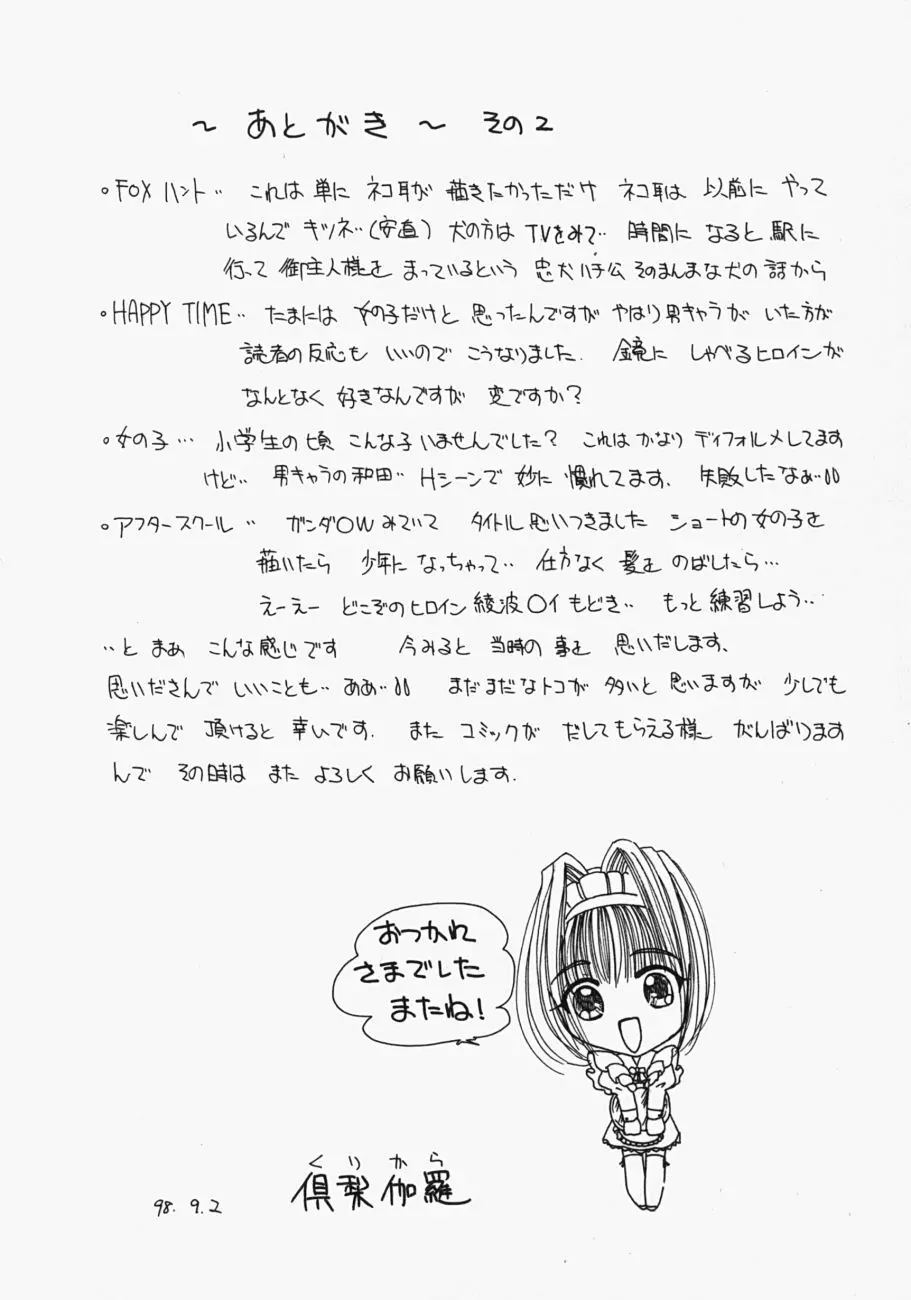 ～ あとがき ～ その2
・FOXハント‥ これは単に ネコ耳が 描きたかっただけ ネコ耳は 以前に やって
いるんで キツネ‥(安直) 犬の方は TVをみて‥ 時間に なると 駅に
行って 御主人様を まっているという 忠犬ハチ公 そのまんまな犬の話から
・HAPPY TIME‥ たまには 女の子だけと 思ったんですが やはり男キャラが いた方が
読者の反応も いいので こうなりました. 鏡に しゃべるヒロインが
なんとなく 好きなんですが 変ですか?
・女の子… 小学生の頃 こんな子いませんでした? これは かなり ディフォルメしてます
けど‥ 男キャラの和田‥ Hシーンで 妙に 慣れてます. 失敗したなぁ‥
・アフタースクール‥ ガンダ○W みていて タイトル思いつきました ショートの女の子を
描いたら 少年に なっちゃって‥ 仕方なく 髪を のばしたら…
えーえー どこぞのヒロイン 綾波○イもどき‥ もっと練習しよう‥
‥と まあ こんな感じです 今みると 当時の 事を 思いだします.
思いださんで いいことも‥ああ‥ まだまだなトコが 多いと 思いますが 少しでも
楽しんで 頂けると 幸いです. また コミックが だしてもらえる様 がんばります
んで その時は また よろしく お願いします.
おつかれ
さまでした
またね!
くりから
倶梨伽羅
98. 9. 2